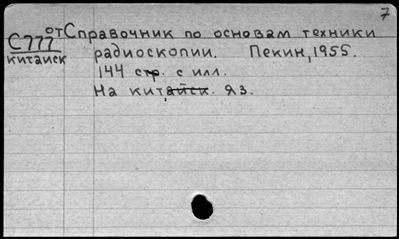 7
от Справочник по основам техники
С777
китайск
радиоскопии. Пекин, 1955.
144 стр. с илл.
На китайск. яз.